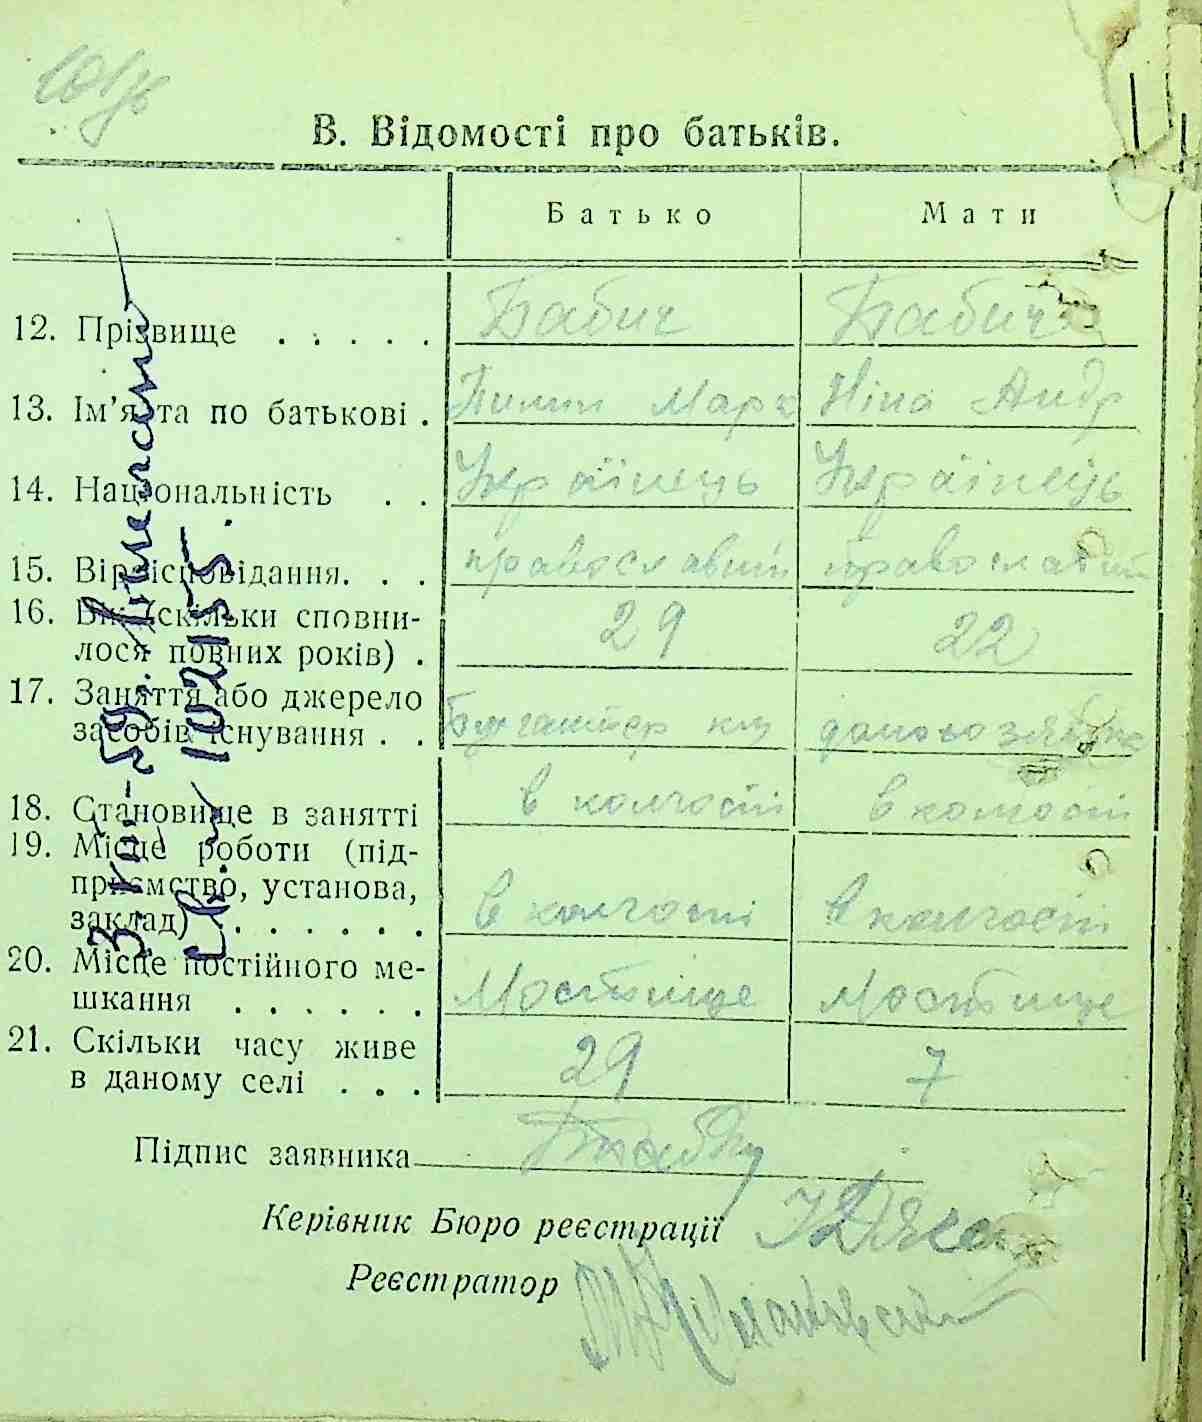 В. Відомості про батьків.
Батько Мати
12. Прізвище . . . . . Бабич Бабич
13. Ім’я та по батькові . Пилип Марк Ніна Андр
14. Національність . . Українець Українець
15. Віросповідання. . . православний православний
16. Вік (скільки сповни-
лося повних років) . 29 22
17. Заняття або джерело
засобів існування . . домохозяйка
18. Становище в занятті в колгоспі в колгоспі
19. Місце роботи (під-
приємство, установа,
заклад) . . . . . . . в колгоспі в колгоспі
20. Місце постійного ме-
шкання . . . . . . Мостище Мостище
21. Скільки часу живе
в даному селі . . . 29 7
Підпис заявника
Керівник Бюро реєстрації
Реєстратор